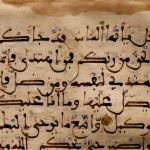 قل يأيها الناس قد جاكم
الحق من ربكم فمن اهتدى فإنما
يهتدي لنفسه ومن ضل فإنما
يضل عليها وما أنا عليكم
بوكيل واتبع ما يوحى إليك